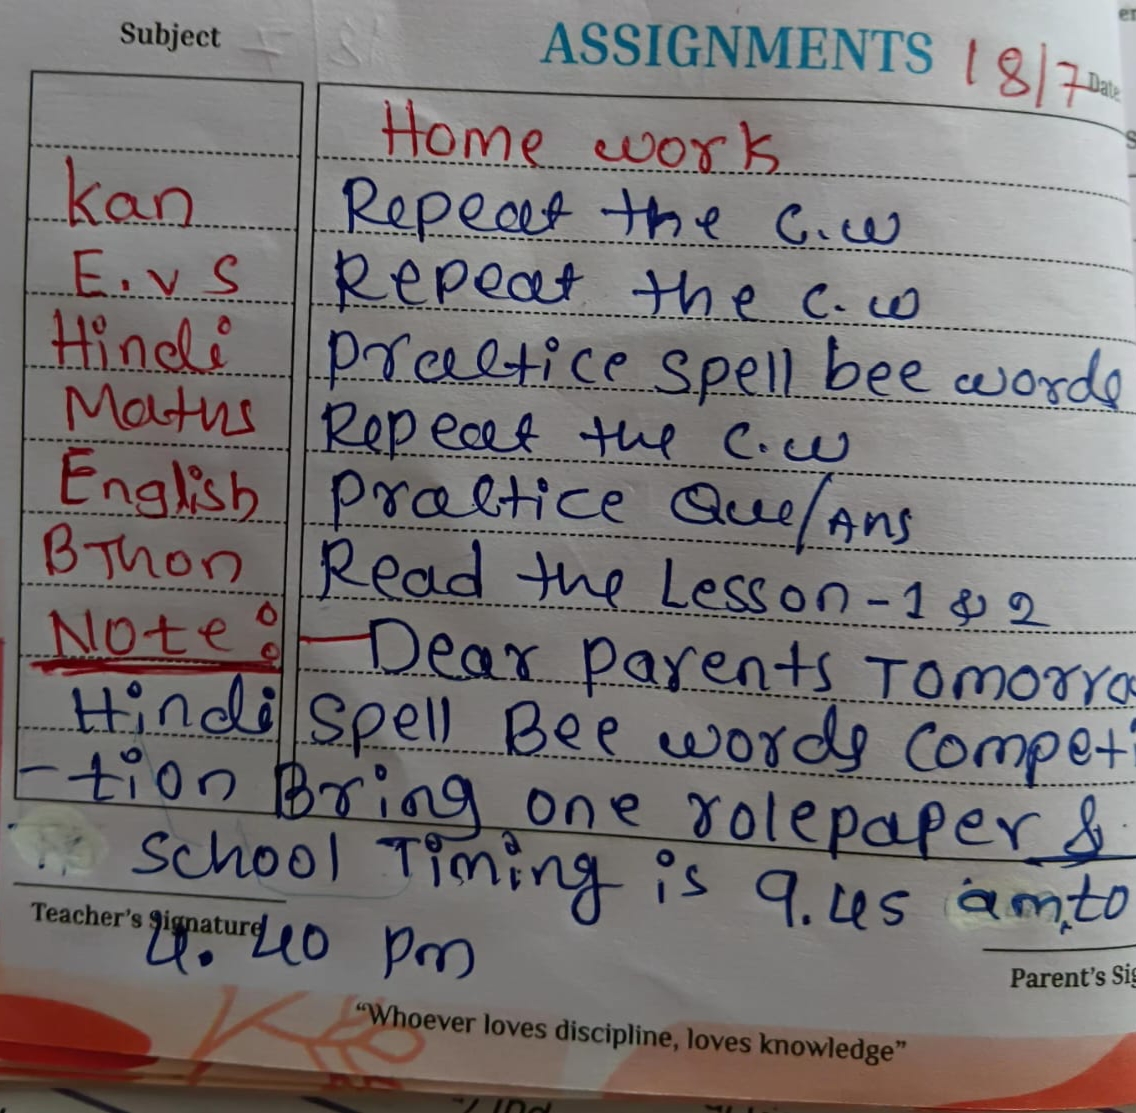 Subject ASSIGNMENTS 18/7 Date
Home work
Kan Repeat the C.w
E.v S Repeat the C.w
Hindi practice spell bee words
Maths Repeat the C.w
English practice Que/Ans
BThon Read the Lesson-1 & 2
Note: Dear parents Tomorro
Hindi Spell Bee words Competi
-tion Bring one rolepaper &
School Timing is 9.45 am to
Teacher's Signature
4.40 pm
Parent's Sig
"Whoever loves discipline, loves knowledge"